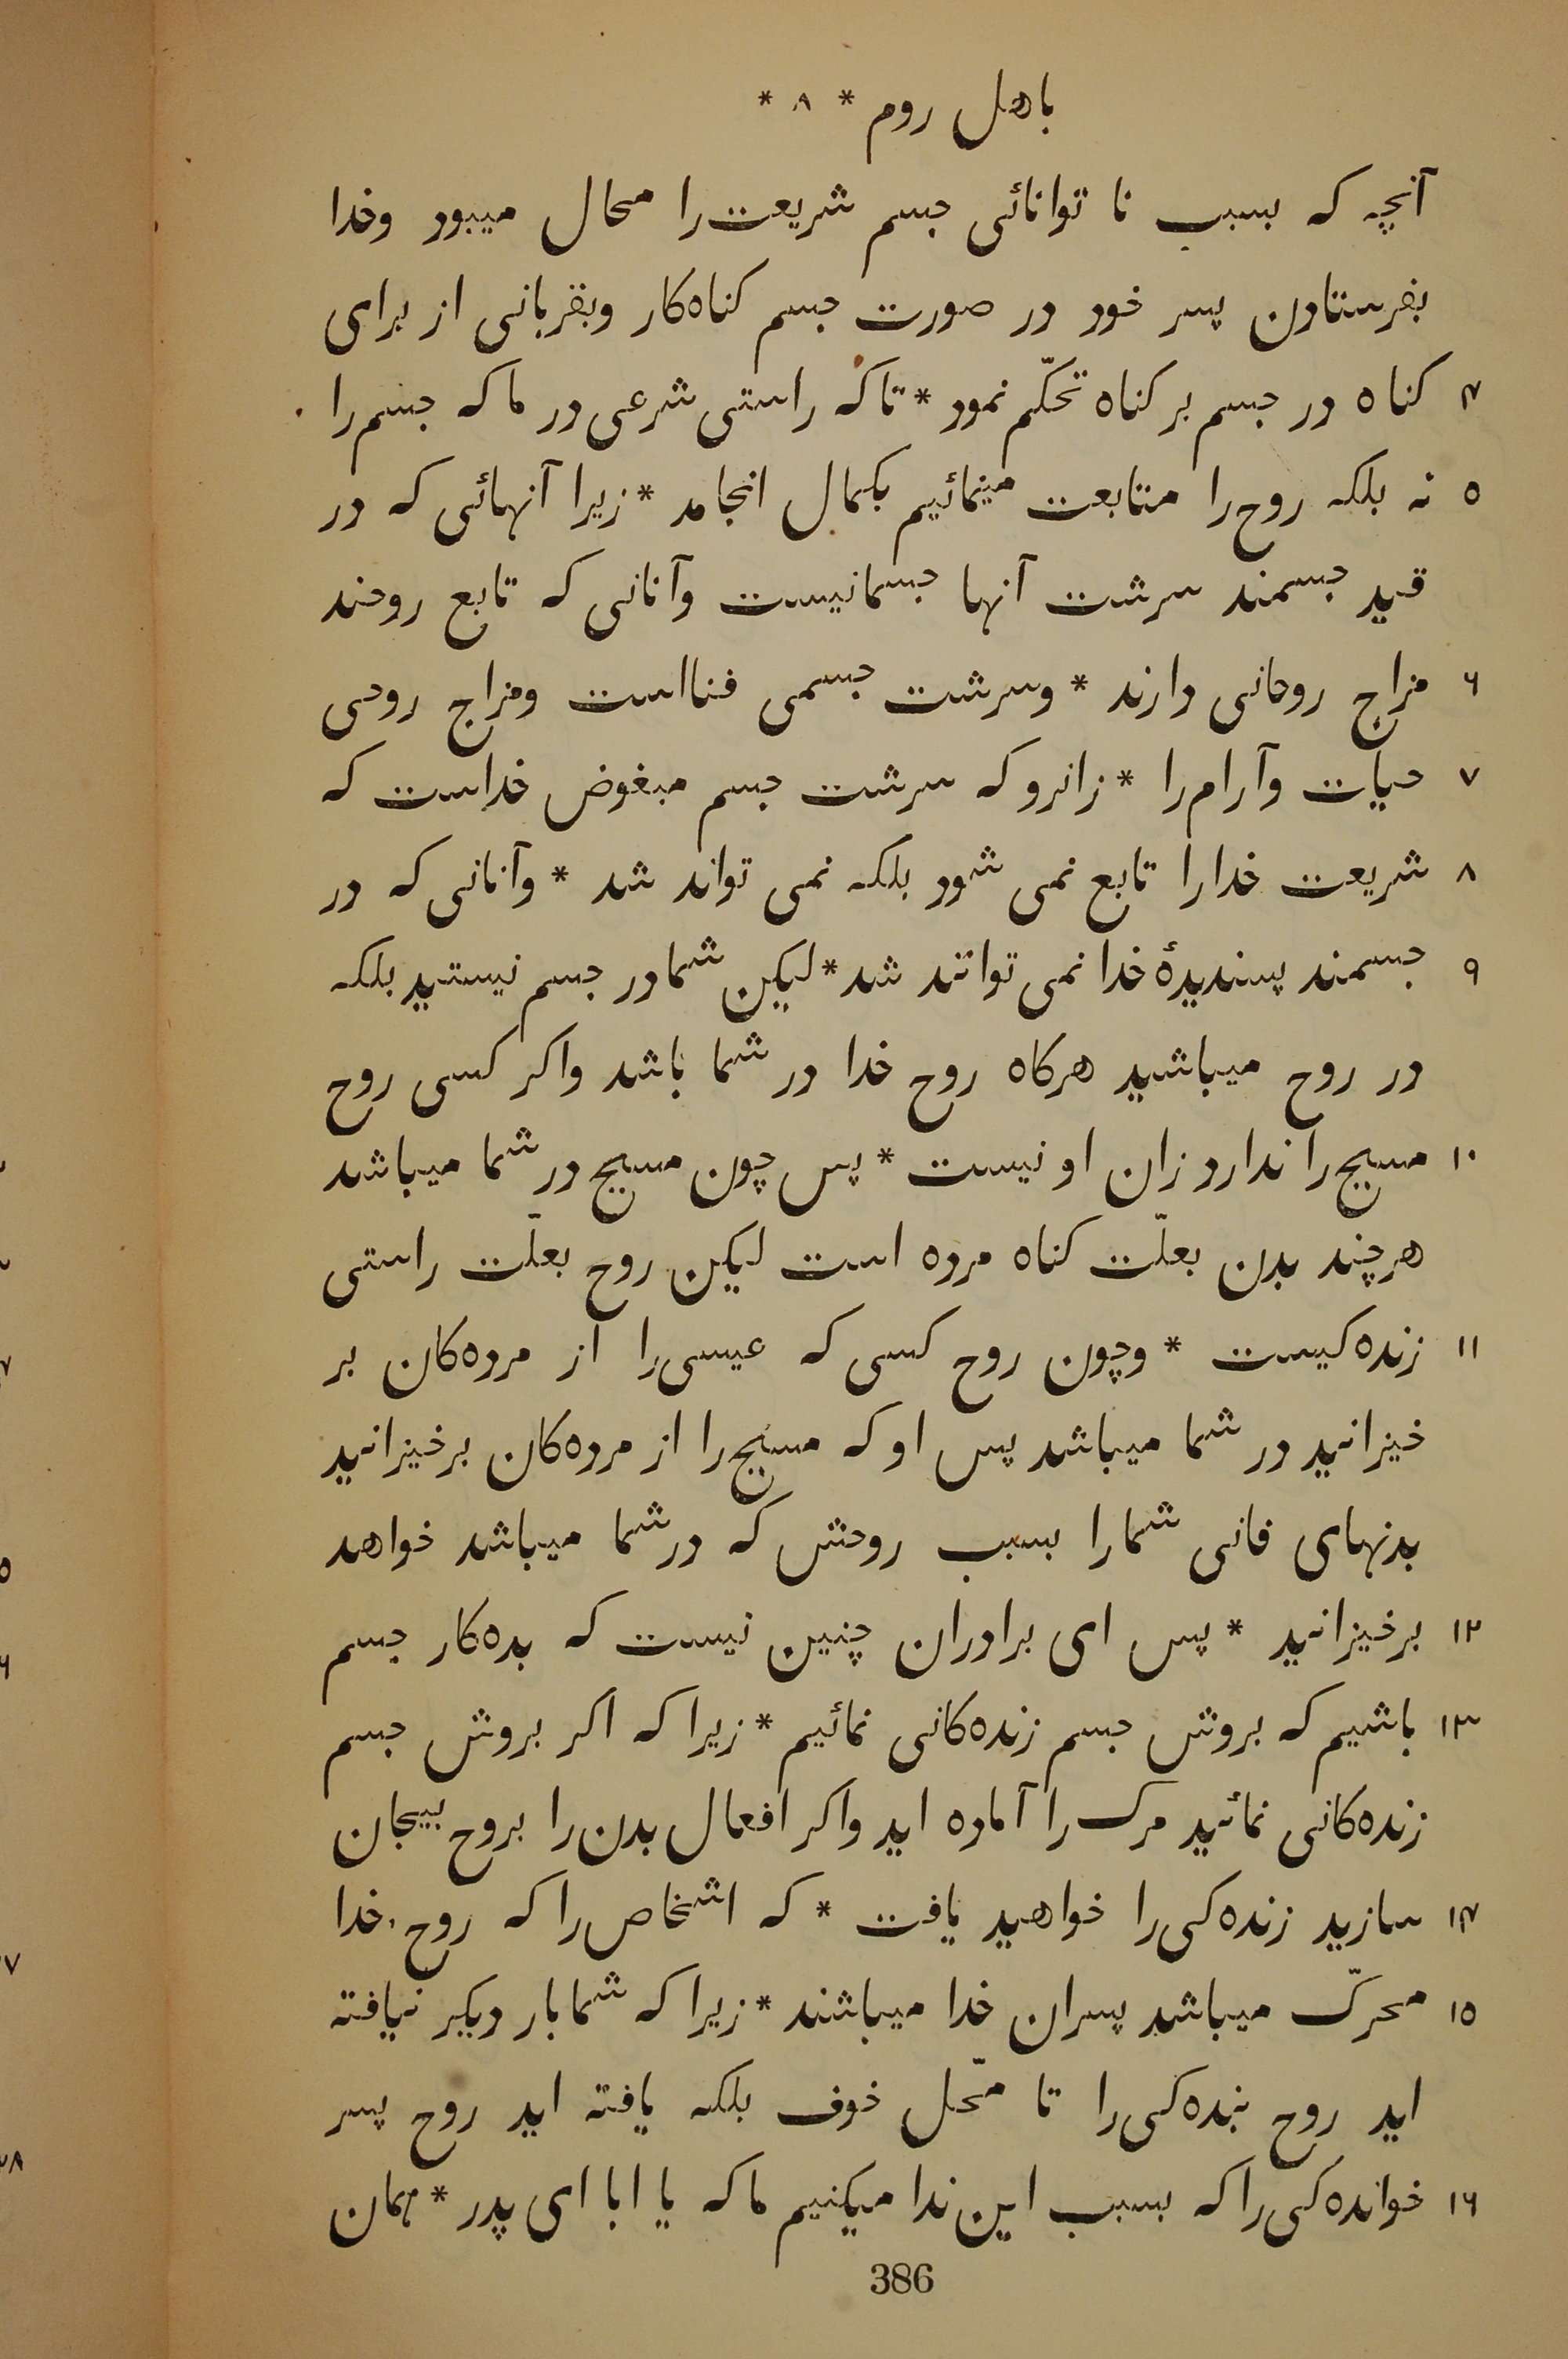 باهل روم * ٨ *
آنچه که بسبب نا توانائی جسم شریعت را محال میبود وخدا
بفرستادن پسر خود در صورت جسم کناه‌کار وبقربانی از برای
۴ کناه در جسم بر کناه تحکّم نمود * تا که راستی شرعی در ما که جسم را
۵ نه بلکه روح را متابعت مینمائیم بکمال انجامد * زیرا آنهائی که در
قید جسمند سرشت آنها جسمانیست وآنانی که تابع روحند
۶ مزاج روحانی دارند * وسرشت جسمی فنااست ومزاج روحی
۷ حیات وآرام را * زانرو که سرشت جسم مبغوض خداست که
۸ شریعت خدا را تابع نمی شود بلکه نمی تواند شد * وآنانی که در
۹ جسمند پسندیدهٔ خدا نمی توانند شد * لیکن شما در جسم نیستید بلکه
در روح میباشید هرکاه روح خدا در شما باشد واکر کسی روح
۱۰ مسیح را ندارد زان او نیست * پس چون مسیح در شما میباشد
هرچند بدن بعلّت کناه مرده است لیکن روح بعلّت راستی
۱۱ زنده‌کیست * وچون روح کسی که عیسی را از مرده‌کان بر
خیزانید در شما میباشد پس او که مسیح را از مرده‌کان برخیزانید
بدنهای فانی شما را بسبب روحش که در شما میباشد خواهد
۱۲ برخیزانید * پس ای برادران چنین نیست که بده‌کار جسم
۱۳ باشیم که بروش جسم زنده‌کانی نمائیم * زیرا که اکر بروش جسم
زنده‌کانی نمائید مرک را آماده اید واکر افعال بدن را بروح بیجان
۱۴ سازید زنده‌کی را خواهید یافت * که اشخاص را که روح خدا
۱۵ محرّک میباشد پسران خدا میباشند * زیرا که شما بار دیکر نیافته
اید روح بنده‌کی را تا محّل خوف بلکه یافته اید روح پسر
۱۶ خوانده‌کی را که بسبب این ندا میکنیم ما که یا ابا ای پدر * همان
386